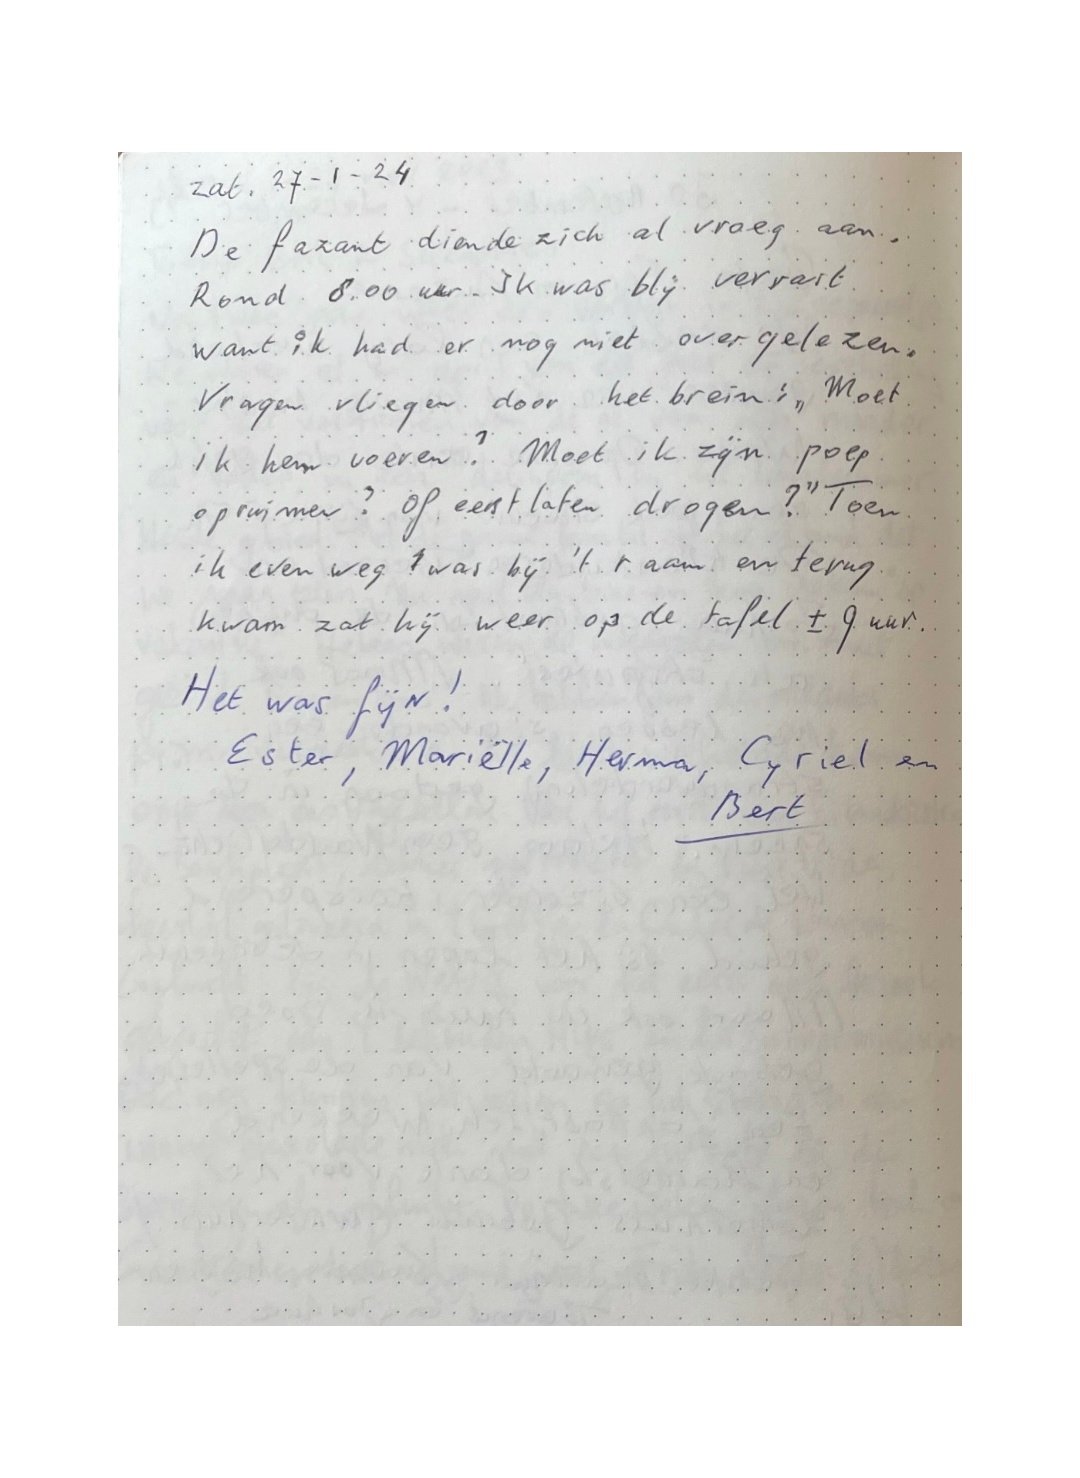 zat. 27-1-24
De fazant diende zich al vroeg aan.
Rond 8.00 uur. Ik was blij verrast
want ik had er nog niet over gelezen.
Vragen vliegen door het brein: „Moet
ik hem voeren? Moet ik zijn poep
opruimen? Of eerst laten drogen?" Toen
ik even weg was bij 't raam en terug
kwam zat hij weer op de tafel ± 9 uur.
Het was fijn!
Ester, Mariëlle, Herma, Cyriel en
Bert